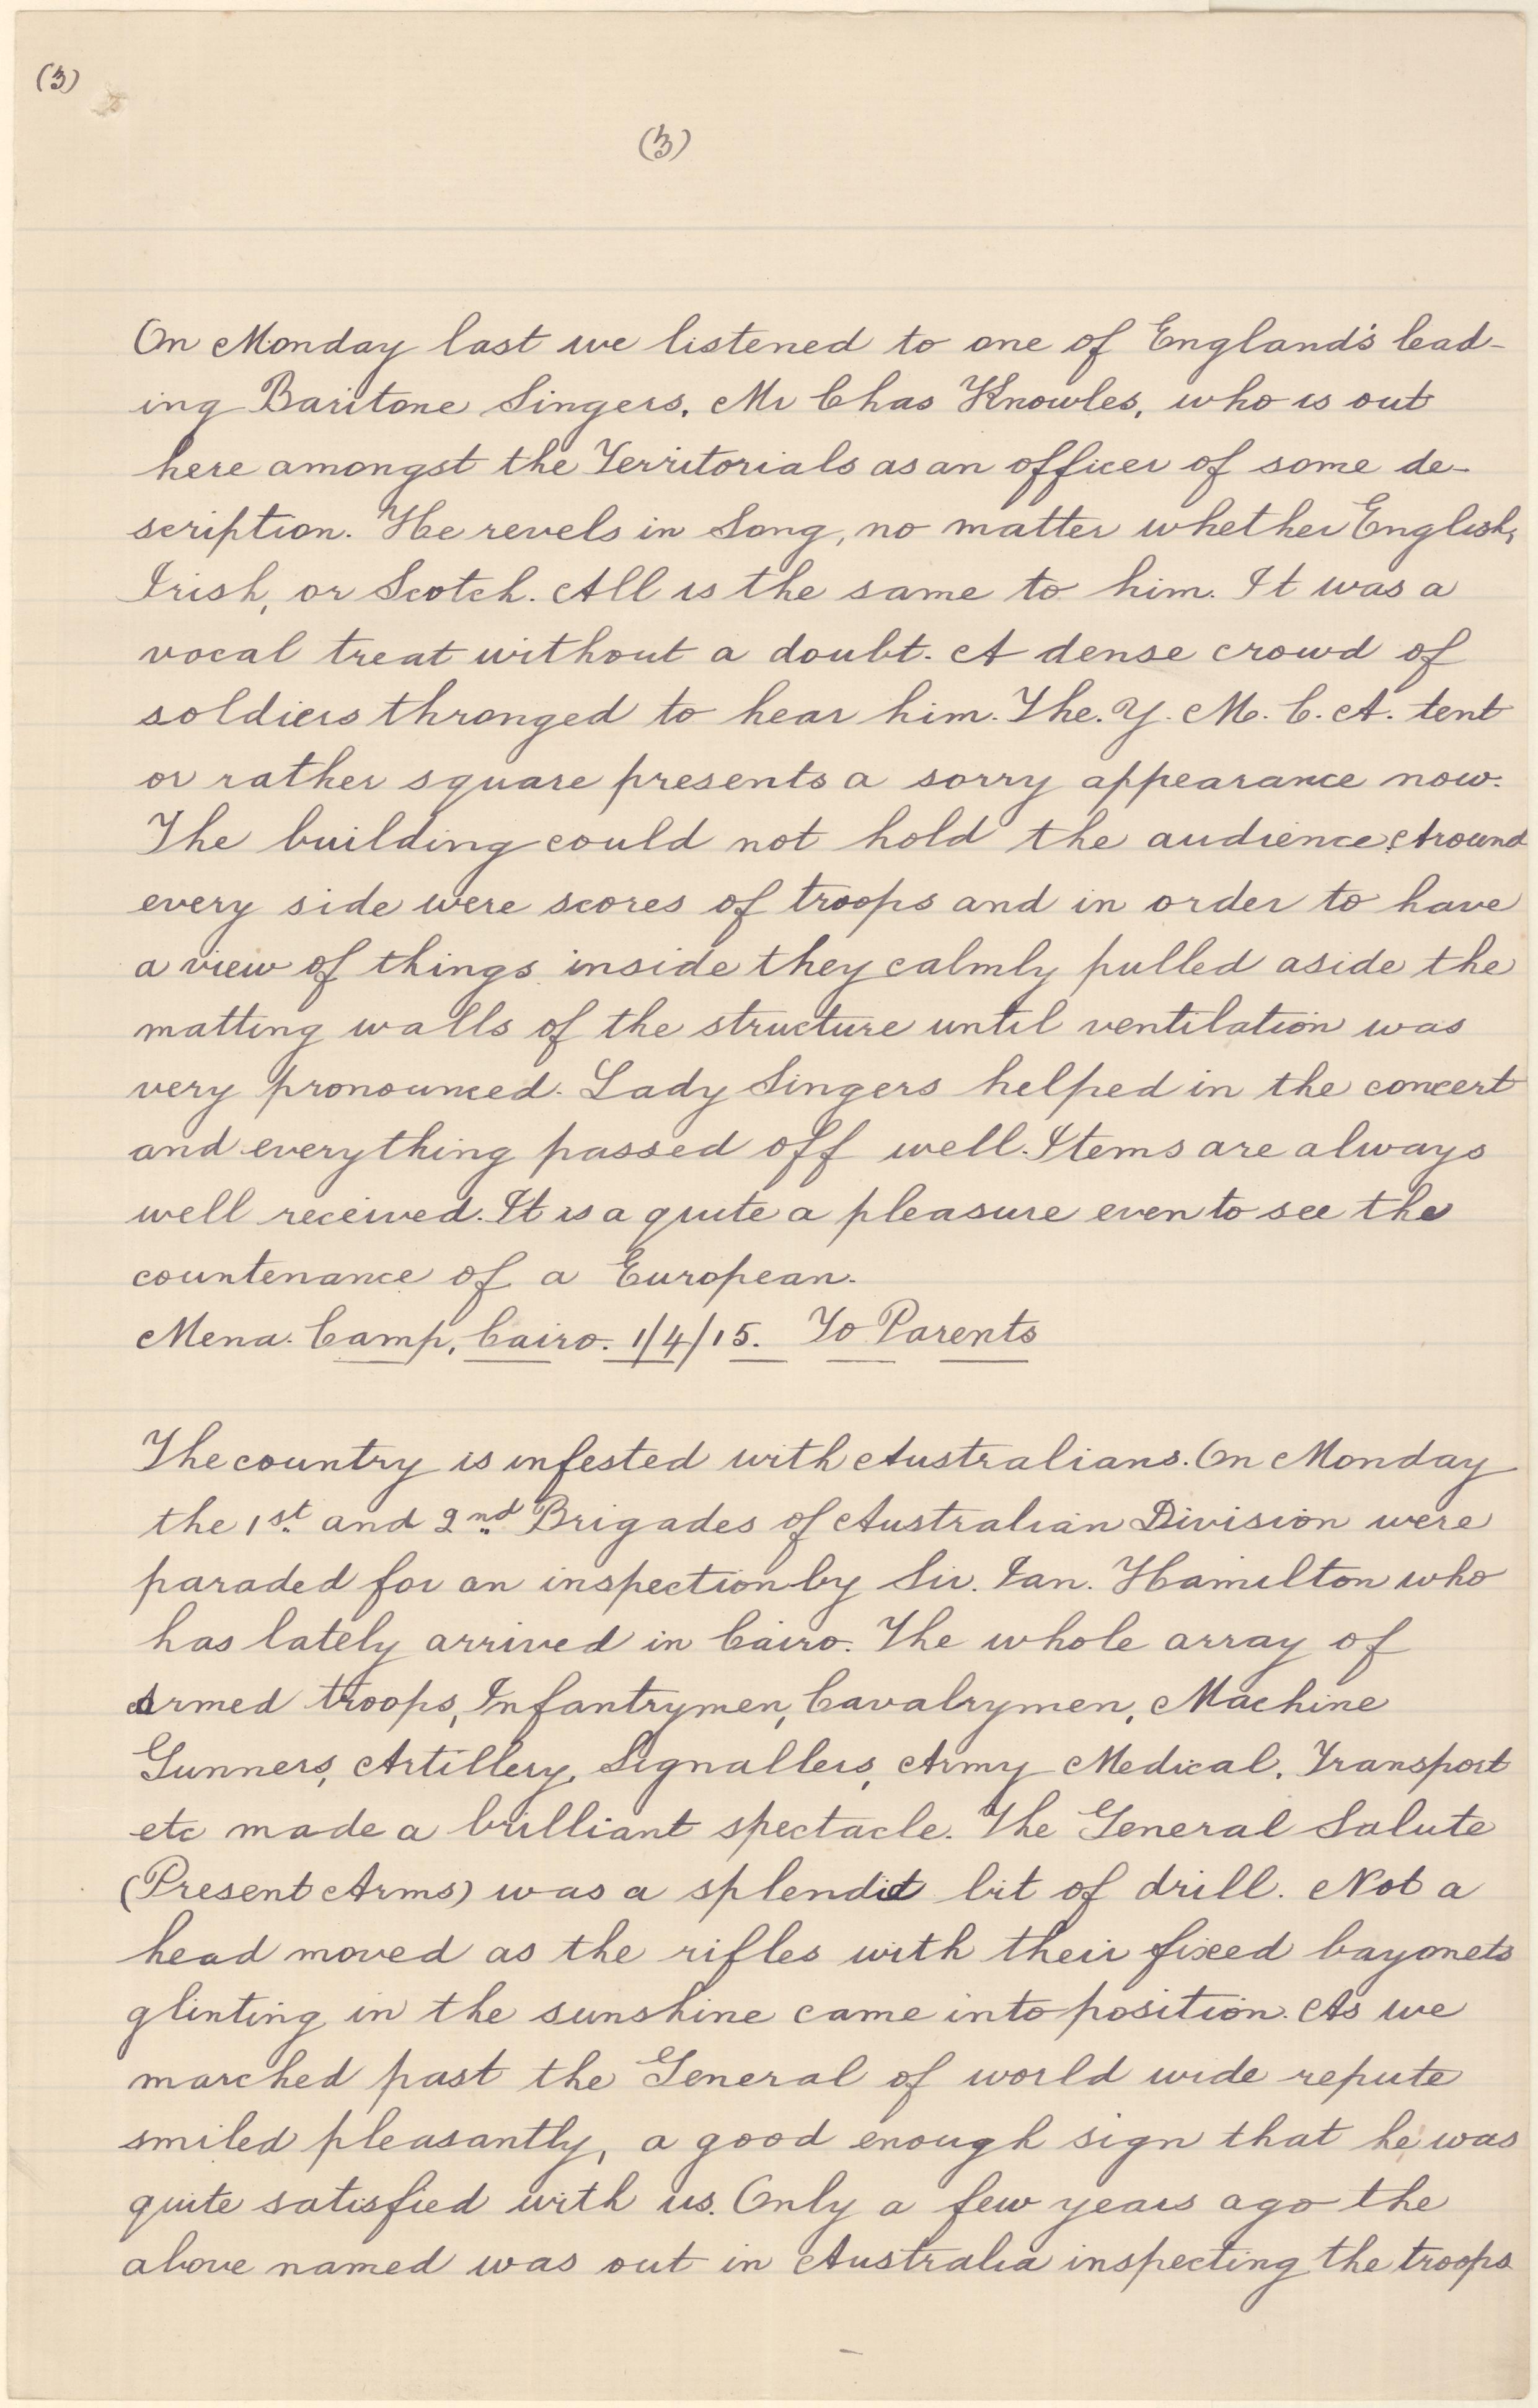 (3)
(3)
On Monday last we listened to one of England's lead-
ing Baritone Singers, Mr Chas Knowles, who is out
here amongst the Territorials as an officer of some de-
scription. He revels in Song, no matter whether English,
Irish, or Scotch. All is the same to him. It was a
vocal treat without a doubt. A dense crowd of
soldiers thronged to hear him. The Y. M. C. A. tent
or rather square presents a sorry appearance now.
The building could not hold the audience. Around
every side were scores of troops and in order to have
a view of things inside they calmly pulled aside the
matting walls of the structure until ventilation was
very pronounced. Lady Singers helped in the concert
and everything passed off well. Items are always
well received. It is a quite a pleasure even to see the
countenance of a European.
Mena Camp, Cairo. 1/4/15. To Parents
The country is infested with Australians. On Monday
the 1st and 2nd Brigades of Australian Division were
paraded for an inspection by Sir. Ian. Hamilton who
has lately arrived in Cairo. The whole array of
Armed troops, Infantrymen, Cavalrymen, Machine
Gunners, Artillery, Signallers, Army Medical, Transport
etc made a brilliant spectacle. The General Salute
(Present Arms) was a splendid bit of drill. Not a
head moved as the rifles with their fixed bayonets
glinting in the sunshine came into position. As we
marched past the General of world wide repute
smiled pleasantly, a good enough sign that he was
quite satisfied with us. Only a few years ago the
above named was out in Australia inspecting the troops